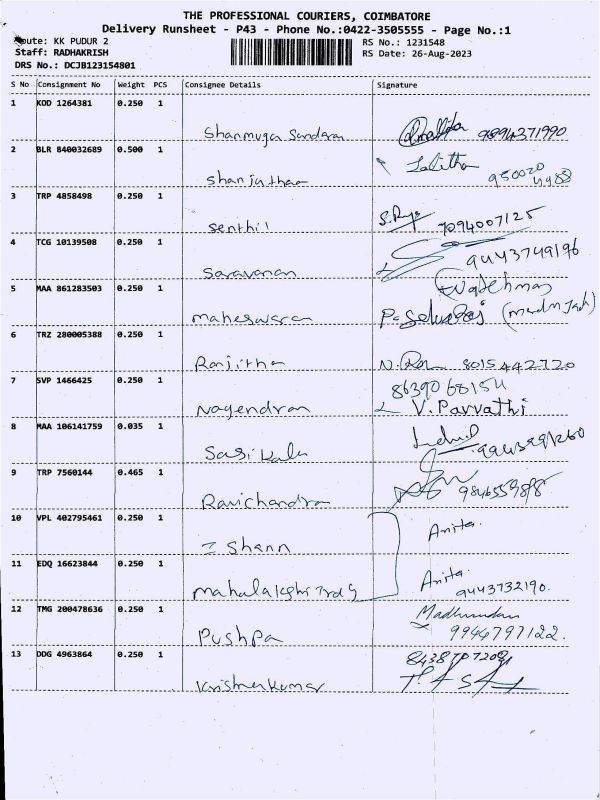 THE PROFESSIONAL COURIERS, COIMBATORE
Delivery Runsheet - P43 - Phone No.:0422-3505555 - Page No.:1
Route: KK PUDUR 2
RS No.: 1231548
Staff: RADHAKRISH
RS Date: 26-Aug-2023
DRS No.: DCJB123154801
S No Consignment No Weight PCS Consignee Details Signature
1 KOD 1264381 0.250 1
Shanmuga Sundaram 9894371990
2 BLR 840032689 0.500 1
Shanjuthaa Lalitha 950020
4988
3 TRP 4858498 0.250 1
Senthil 7094007125
4 TCG 10139508 0.250 1
Saravanan 9443749196
5 MAA 861283503 0.250 1
Maheswaran P. Selvaraj
6 TRZ 280005388 0.250 1
Ranjitha 8015442720
7 SVP 1466425 0.250 1
8639068154
Nagendran V. Parvathi
8 MAA 106141759 0.035 1
Sasi Kala 9943991260
9 TRP 7560144 0.465 1
Ravichandran
10 VPL 402795461 0.250 1
Anita
I Shann
11 EDQ 16623844 0.250 1
Anita
Mahalakshmi Trdg 9443732190.
12 TMG 200478636 0.250 1
Pushpa 9944797122.
13 DDG 4963864 0.250 1
Krishnakumar